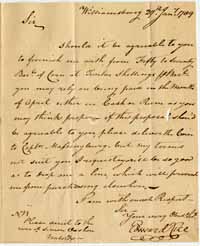 Williamsburg 29th Jany. 1789
Sir
Should it be agreeable to you
to furnish me with from Fifty to Seventy
Barls. of Corn at Twelve Shillings
you may rely on being paid in the Month
of April either in Cash or Rum as you
may think proper. If this proposal should
be agreeable to you, please deliver the Corn
to Captn. but if my terms
not suit you I request you'll be so good
as to drop me a line which will prevent
me from purchasing elsewhere.
I am with much Respect
Sir
Your very
Edward
NB
Please send to the